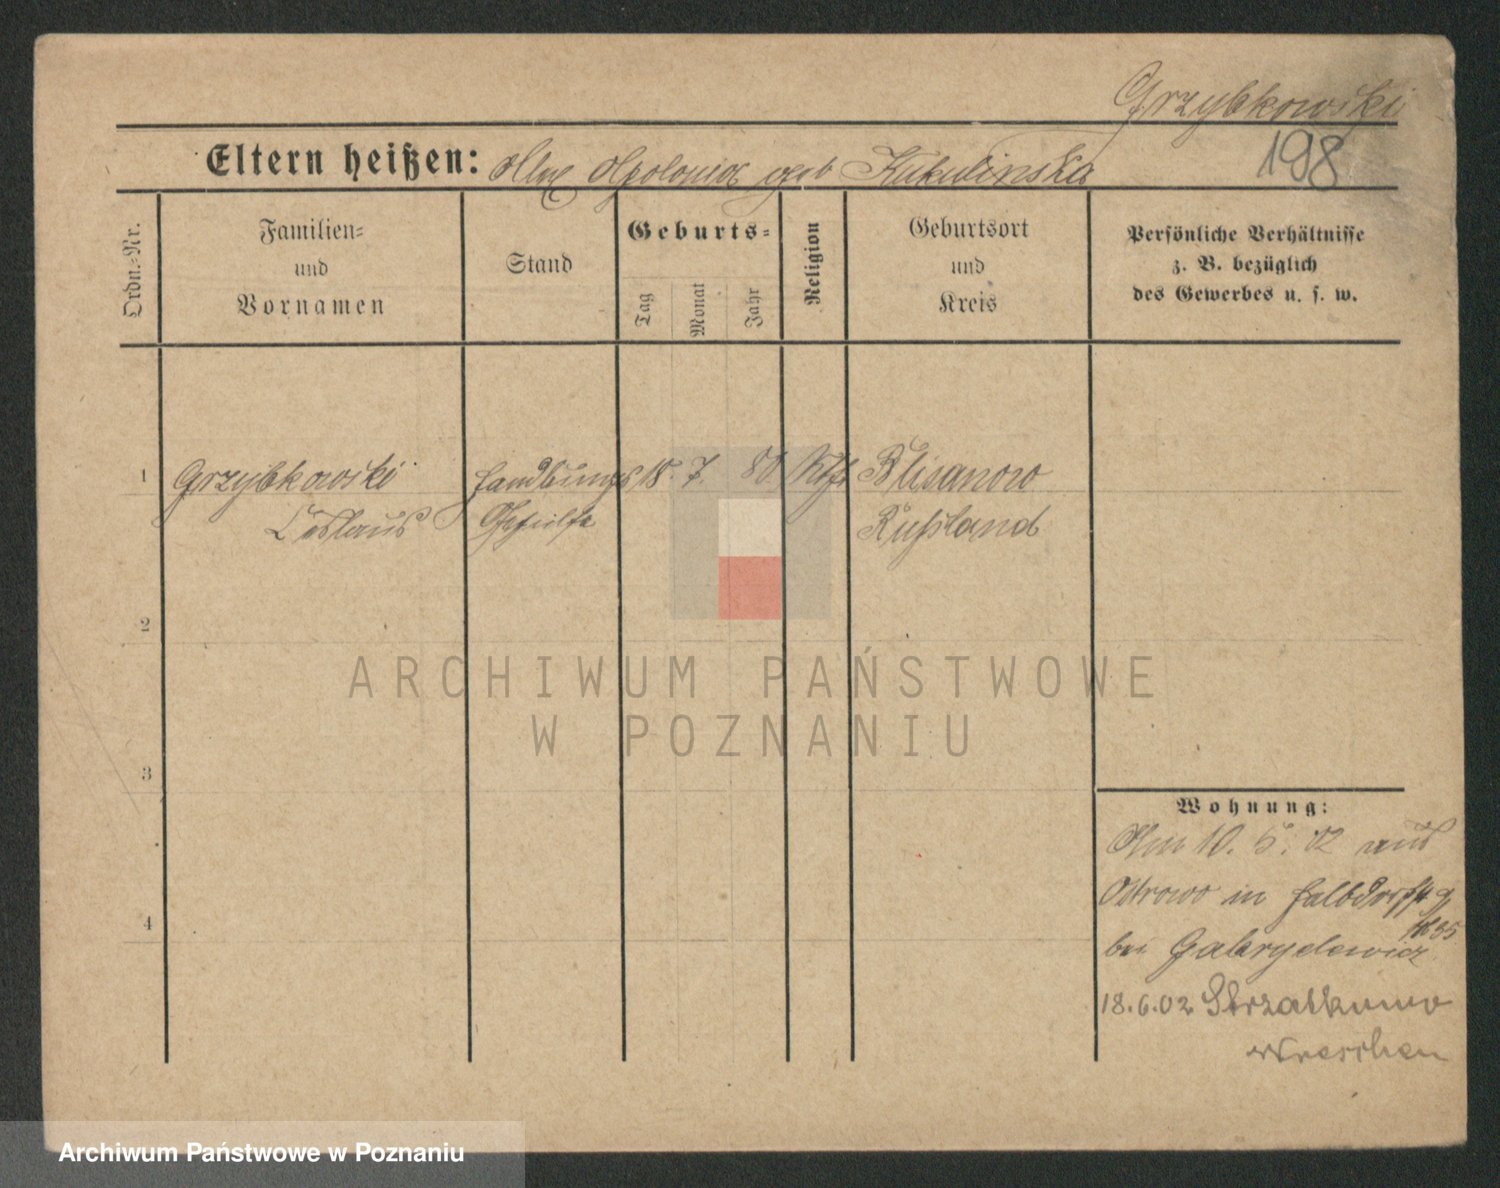 Grzybkowski
198
Eltern heißen: Apolonia geb Kukulinska
Ordn.-Nr.
Familien-
und
Vornamen
Stand
Geburts-
Tag
Monat
Jahr
Religion
Geburtsort
und
Kreis
Persönliche Verhältnisse
z. B. bezüglich
des Gewerbes u. s. w.
1 Grzybkowski Handlungs 18. 7. 80 Kth Blisanow
Ceslaus Gehülfe Rußland
2
ARCHIWUM PAŃSTWOWE
W POZNANIU
3
Wohnung:
Am 10. 5. 02 aus
4
Ostrowo in Halbdorfstr 9
bei Gabryelewicz
18.6.02 Strzalkowo
Wreschen
Archiwum Państwowe w Poznaniu